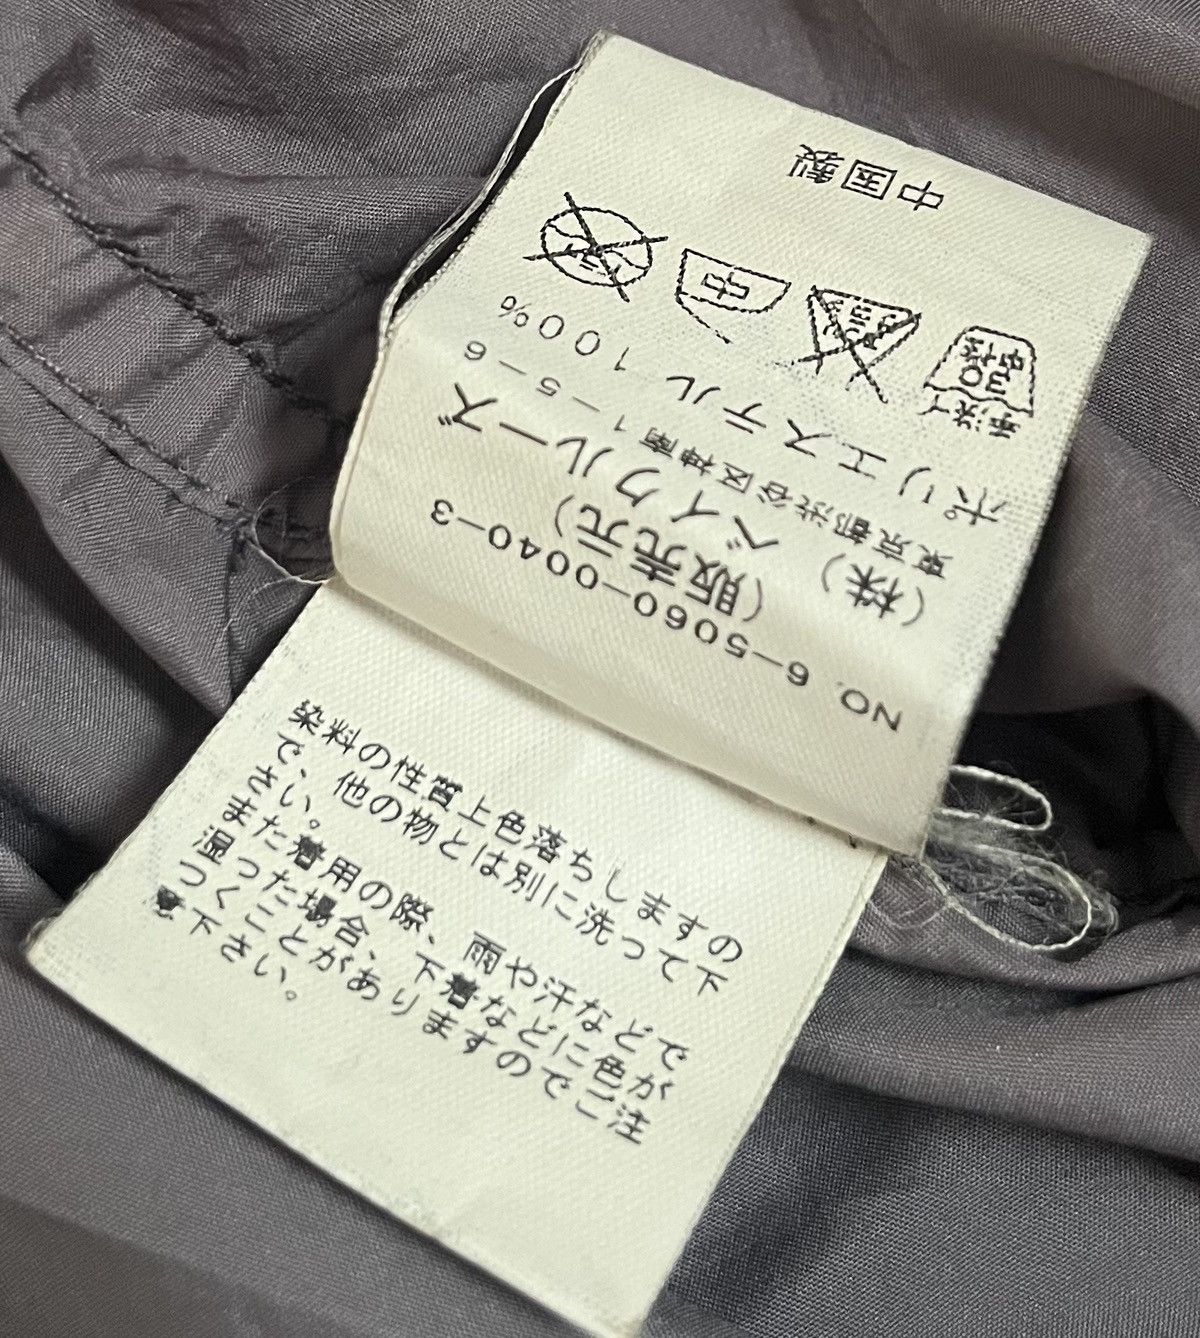 NO. 6-5060-0040-3
(販売元)
(株) ベイクルーズ
東京都渋谷区神南1-5-6
ポリエステル 100%
手洗イ
30
中性
中
中国製
染料の性質上色落ちしますの
で、他の物とは別に洗って下
さい。
また着用の際、雨や汗などで
湿った場合、下着などに色が
つくことがありますのでご注
意下さい。